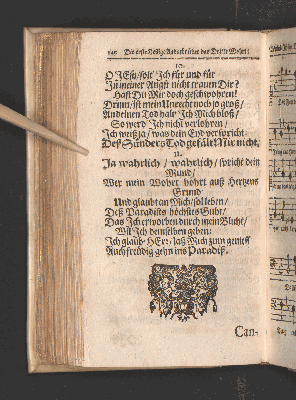 10.
O JEsu/solt' Jch für und für
Jn meiner Angst nicht trauen Dir?
Hast Du Mir doch geschwohren!
Drüm/ist mein Unrecht noch so groß/
An deinen Tod halt' Jch Mich bloß/
So werd' Jch nicht verlohren/
Jch weiß ja/was dein Eyd verspricht:
Deß Sünders Tod gefält Mir nicht.
11.
Ja warlich / warlich / spricht dein
Mund/
Wer mein Wohrt höhrt auß Hertzens
Grund
Und glaubt an Mich/sol leben/
Deß Paradises höchstes Guht/
Das Jch erworben durch mein Bluht/
Wil Jch demselben geben:
Jch glaub' HErr/laß Mich zum genieß
Auch freudig gehn ins Paradiß.
Can-